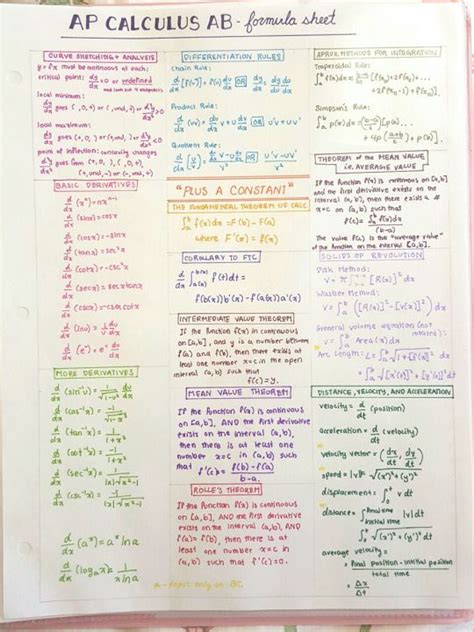 AP CALCULUS AB - formula sheet
CURVE SKETCHING + ANALYSIS
y = f(x) must be continuous at each:
critical point: dy/dx = 0 or undefined
and look out 4 endpoints
local minimum:
dy/dx goes (-, 0, +) or (-, und, +) or d²y/dx² > 0
local maximum:
dy/dx goes (+, 0, -) or (+, und, -) or d²y/dx² < 0
point of inflection: concavity changes
d²y/dx² goes from (+, 0, -), (-, 0, +),
(+, und, -) or (-, und, +)
BASIC DERIVATIVES
d/dx (xⁿ) = nxⁿ⁻¹
d/dx (sinx) = cosx
d/dx (cosx) = -sinx
d/dx (tanx) = sec²x
d/dx (cotx) = -csc²x
d/dx (secx) = secxtanx
d/dx (cscx) = -cscxcotx
d/dx (lnu) = 1/u du/dx
d/dx (eᵘ) = eᵘ du/dx
MORE DERIVATIVES
d/dx (sin⁻¹u) = 1/√(1-u²) du/dx
d/dx (cos⁻¹x) = -1/√(1-x²)
d/dx (tan⁻¹x) = 1/(1+x²)
d/dx (cot⁻¹x) = -1/(1+x²)
d/dx (sec⁻¹x) = 1/(|x|√(x²-1))
d/dx (csc⁻¹x) = -1/(|x|√(x²-1))
d/dx (aˣ) = aˣ lna
d/dx (logₐx) = 1/(x lna)
DIFFERENTIATION RULES
Chain Rule:
d/dx [f(u)] = f'(u) du/dx OR dy/dx = dy/du du/dx
Product Rule:
d/dx (uv) = du/dx v + u dv/dx OR u'v + uv'
Quotient Rule:
d/dx (u/v) = (v du/dx - u dv/dx)/v² OR (u'v - uv')/v²
"PLUS A CONSTANT"
THE FUNDAMENTAL THEOREM OF CALC
∫ₐᵇ f(x)dx = F(b) - F(a)
where F'(x) = f(x)
COROLLARY to FTC
d/dx ∫ f(t)dt =
f(b(x))b'(x) - f(a(x))a'(x)
INTERMEDIATE VALUE THEOREM
If the function f(x) is continuous
on [a,b], and y is a number between
f(a) and f(b), then there exists at
least one number x=c in the open
interval (a,b) such that
f(c) = y.
MEAN VALUE THEOREM
If the function f(x) is continuous
on [a,b], AND the first derivative
exists on the interval (a,b),
then there is at least one
number x=c in (a,b) such
that f'(c) = (f(b)-f(a))/(b-a).
ROLLE'S THEOREM
If the function f(x) is continuous
on [a,b], AND the first derivative
exists on the interval (a,b), AND
f(a)=f(b), then there is at
least one number x=c in
(a,b) such that f'(c) = 0.
- topic only on BC
APROX. METHODS FOR INTEGRATION
Trapezoidal Rule:
∫ₐᵇ f(x)dx = [f(x₀)+2f(x₁)+...
+2f(xₙ₋₁)+f(xₙ)]
Simpson's Rule:
THEOREM of the MEAN VALUE
i.e. AVERAGE VALUE
If the function f(x) is continuous on [a,b]
and the first derivative exists on the
interval (a,b), then there exists a #
x=c on (a,b) such that
f(c) = ∫ₐᵇ f(x)dx/(b-a)
The value f(c) is the "average value"
of the function on the interval [a,b].
SOLIDS OF REVOLUTION
Disk Method:
V = π∫ₐᵇ [R(x)]² dx
Washer Method:
V = π∫ₐᵇ ([R(x)]² - [r(x)]²) dx
General volume equation (not
rotated):
V = ∫ₐᵇ Area(x)dx
Arc Length: L = ∫ₐᵇ √(1+[f'(x)]²) dx
= ∫ₐᵇ √([x'(t)]² + [y'(t)]²) dt
DISTANCE, VELOCITY, AND ACCELERATION
velocity = d/dt (position)
acceleration = d/dt (velocity)
velocity vector = (dx/dt, dy/dt)
speed = |v| = √((x')² + (y')²)
displacement = ∫ v dt
distance = ∫ |v| dt
final time
initial time
∫ √((x')² + (y')²) dt
average velocity =
final position - initial position/total time
= Δx/Δt